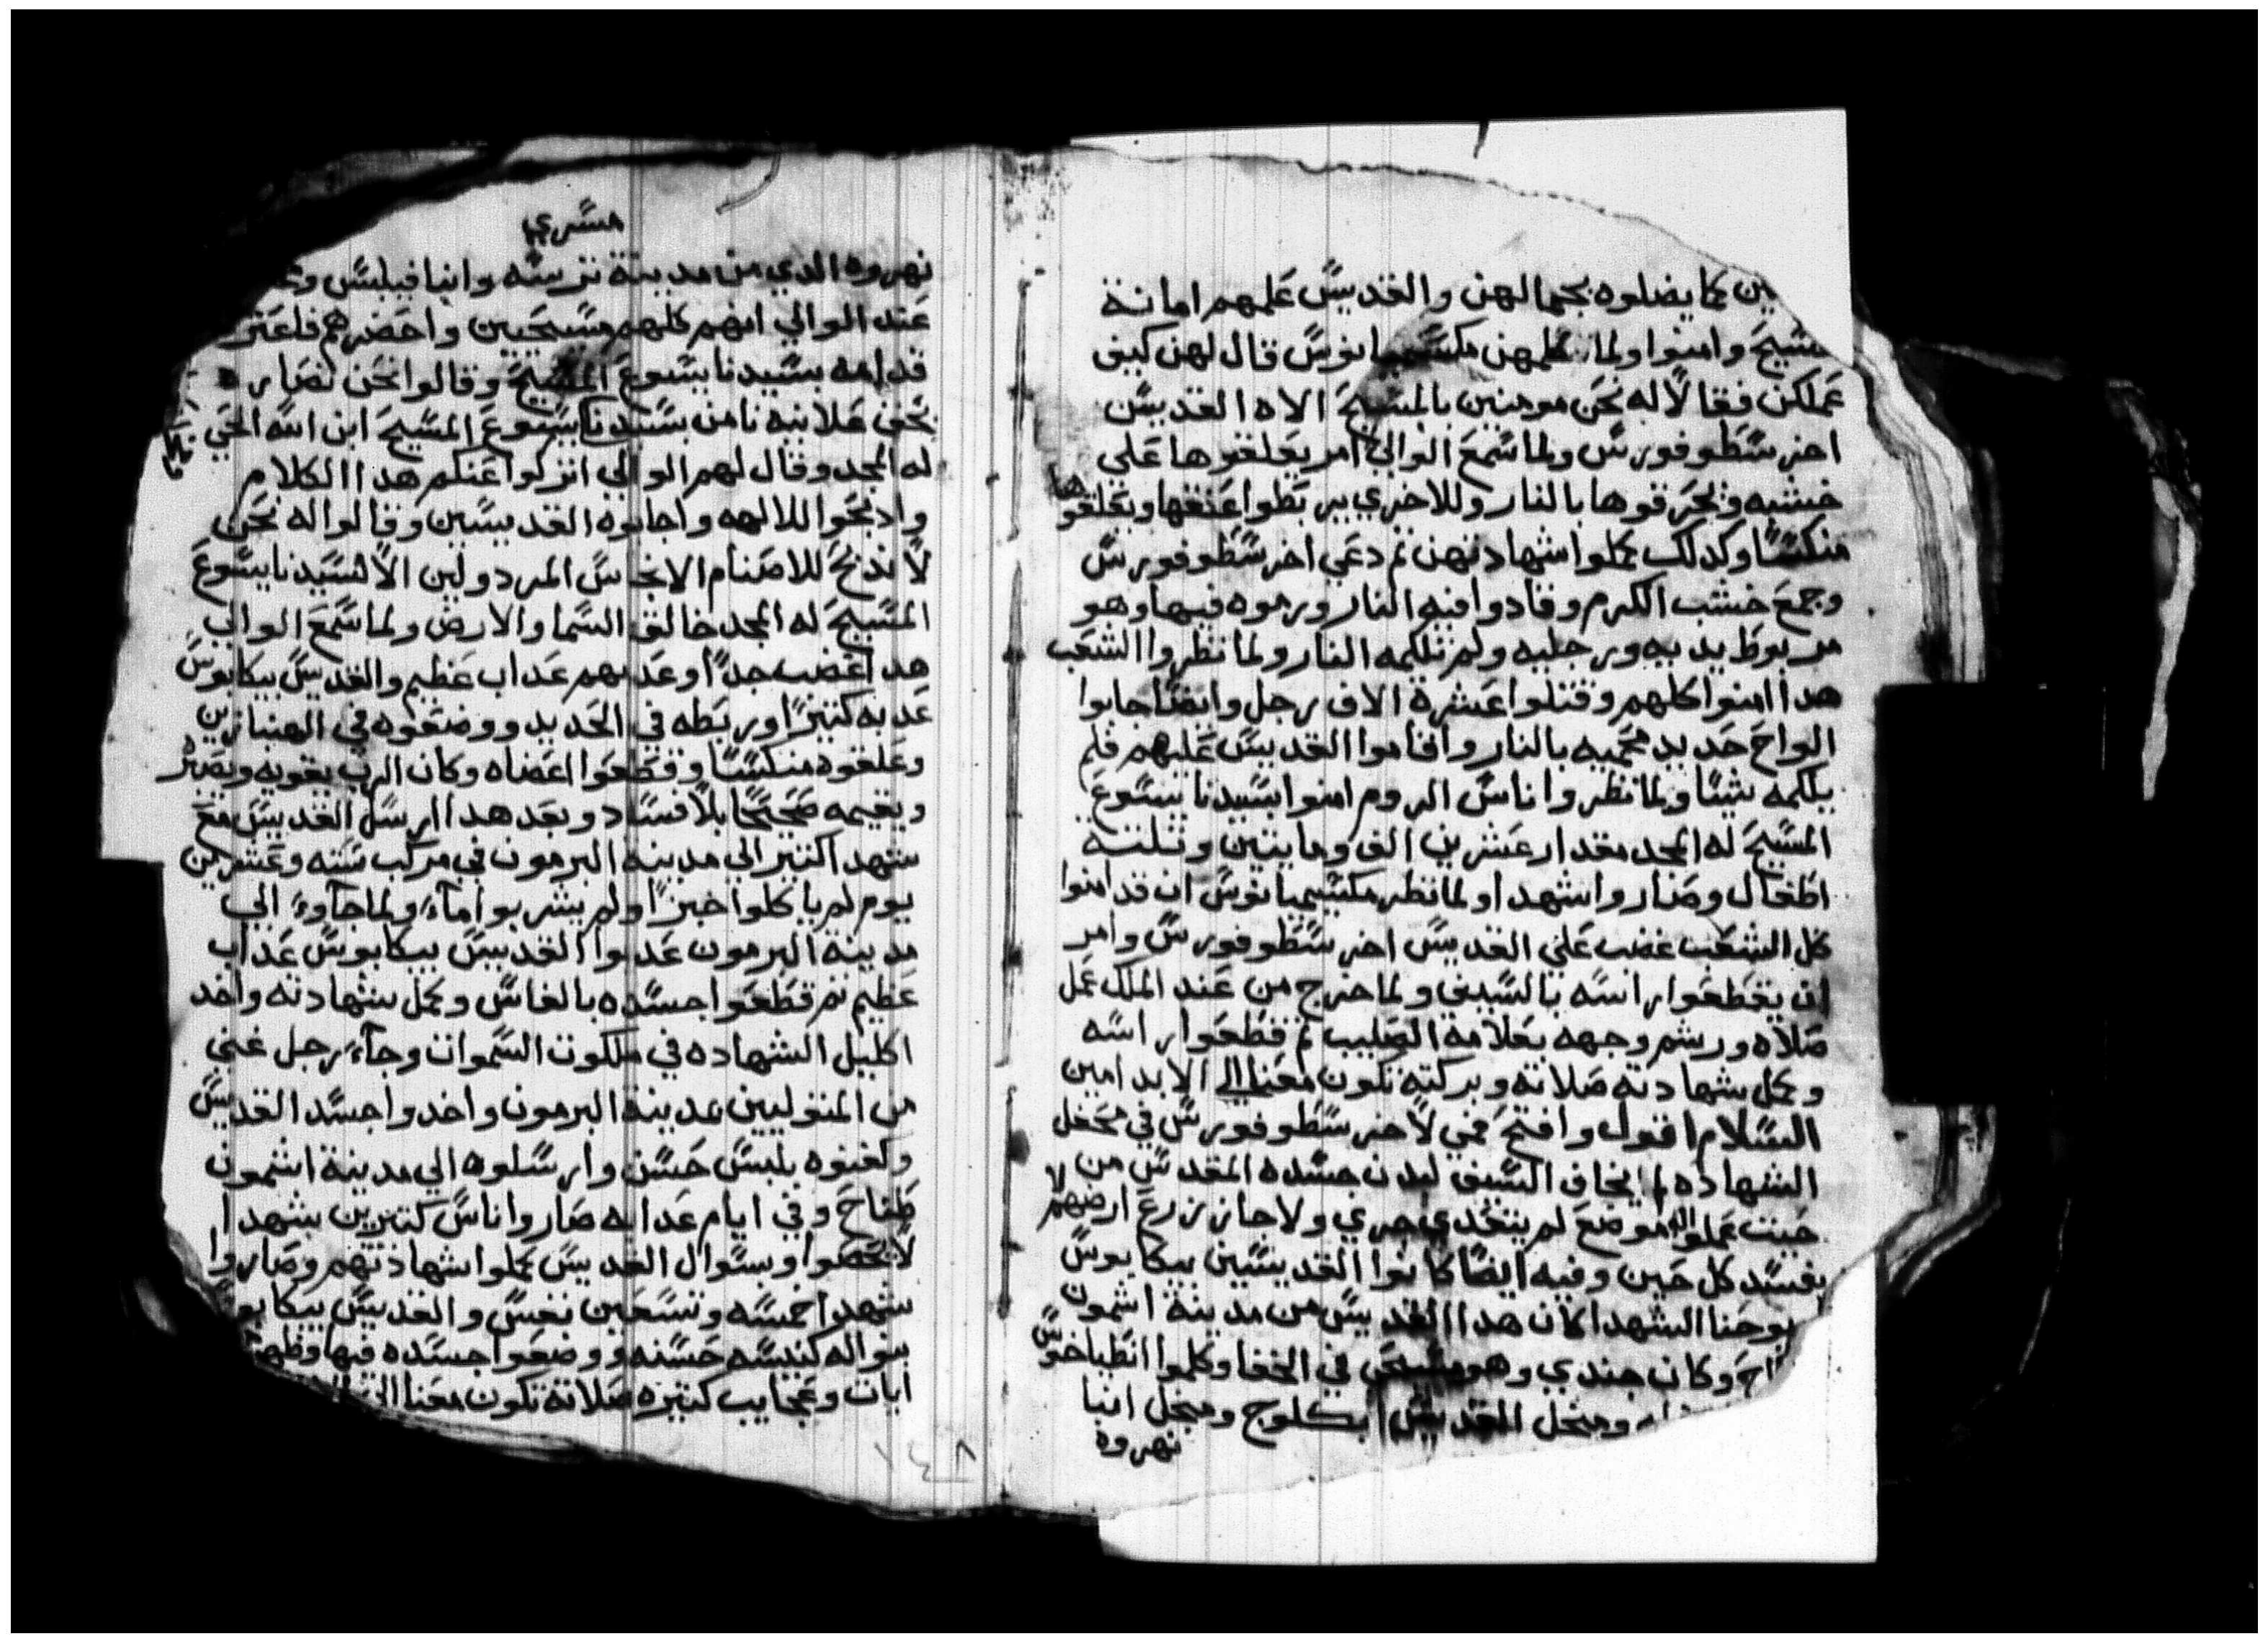 ين كما يضلوه بجمالهن والقديس علمهم امانة
المسيح وامنوا ولما نظرهن مكسيميانوس قال لهن كيف
عملكن فقالا له نحن مومنين بالمسيح الاه القديس
اخرسطوفورس ولما سمع الوالي امر يعلقوها علي
خشبه ويحرقوها بالنار وللاخري يربطوا عنقها ويعلقوها
منكسا وكدلك كملوا شهادتهن تم دعي اخرسطوفورس
وجمع خشب الكرم وقادوا فيه النار ورموه فيها وهو
مربوط يديه ورجليه ولم تلكمه النار ولما نظروا الشعب
هدا امنوا كلهم وقتلوا عشرة الاف رجل وايضا جابوا
الواح حديد محميه بالنار واقاموا القديس عليهم فلم
يلكمه شيا ولما نظروا اناس الروم امنوا بسيدنا يسوع
المسيح له المجد مقدار عشرين الف ومايتين وتلتة
اطفال وصاروا شهدا ولما نظر مكسيميانوس ان قد امنوا
كل الشعب غضب علي القديس اخرسطوفورس وامر
ان يقطعوا راسه بالسيف ولما خرج من عند الملك عمل
صلاه ورشم وجهه بعلامة الصليب تم قطعوا راسه
وكمل شهادته صلاته وبركته تكون معنا الي الابد امين
السلام اقول وافتح فمي لاخرسطوفورس في محفل
الشهاده لم يخاف السيف ليدن جسده المقدس من
حيت عملوا له موضع لم يتعدي جري ولا جاز نزرع ارضهم لا
يفسد كل حين وفيه ايضا كانوا القديسين بيكابوس
يوحنا الشهدا كان هدا القديس من مدينة اشمون
اح وكان جندي وهو مسيحي في الخفا وكلموا انطياخوس
ومنجل القديس ابكلوج ومنجل انبا
نهروه
مسري
نهروه الدي من مدينة ترسه وانبا فيلبس
عند الوالي انهم كلهم مسيحيين واحضرهم فاعترفوا
قدامه بسيدنا يسوع المسيح وقالوا نحن نصاره
نحن علانيه نامن بسيدنا يسوع المسيح ابن الله الحي
له المجد وقال لهم الوالي اتركوا عنكم هدا الكلام
وادبحوا للالهه واجابوه القديسين وقالوا له نحن
لا ندبح للاصنام الانجاس المردولين الا لسيدنا يسوع
المسيح له المجد خالق السما والارض ولما سمع الوالي
هدا غضب جدا وعدبهم عداب عظيم والقديس بيكابوس
عدبه كتيرا وربطه في الحديد ووضعوه في الهنبازين
وعلقوه منكسا وقطعوا اعضاه وكان الرب يقويه ويصبره
ويقيمه صحيحا بلا فساد وبعد هدا ارسل القديس مع
شهدا كتير الي مدينة البرمون في مركب سته وعشرين
يوم لم ياكلوا خبزا ولم يشربوا مآء ولما جآوء الي
مدينة البرمون عدبوا القديس بيكابوس عداب
عظيم تم قطعوا جسده بالفاس وكمل شهادته واخد
اكليل الشهاده في ملكوت السموات وجآء رجل غني
من المتوليين مدينة البرمون واخدوا جسد القديس
ولفنوه بلبس حسن وارسلوه الي مدينة اشمون
طناح وفي ايام عدابه صاروا اناس كتيرين شهدا
لا يحصوا وبسوال القديس كملوا شهادتهم وصاروا
شهدا خمسه وتسعين نفس والقديس بيكابوس
بنوا له كنيسه حسنه ووضعوا جسده فيها وظهر
ايات وعجايب كتيره صلاته تكون معنا الي
١٤٨